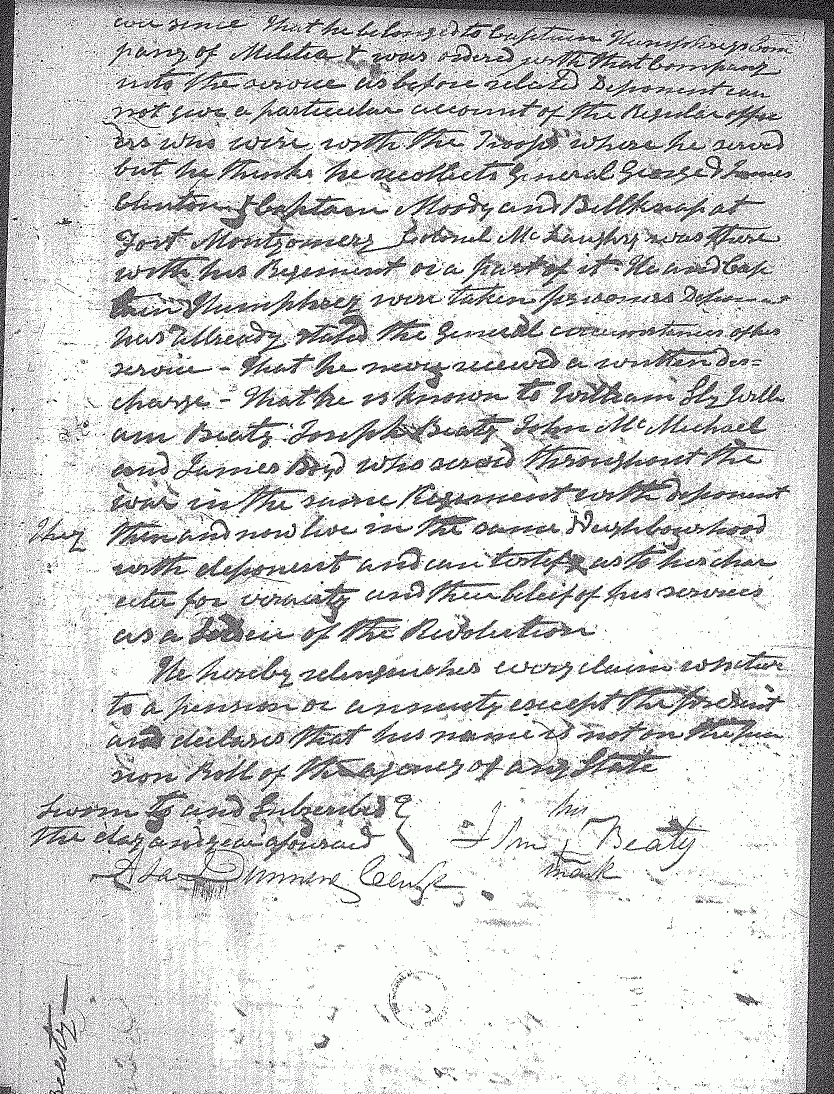 ever since That he belonged to Captain Humphreys Com
pany of Militia & was ordered with that Company
into the service as before related Deponent can
not give a particular account of the Regular offic
ers who were with the Troops where he served
but he thinks he recollects General George & James
Clinton & Captain Moody and Bellknap at
Fort Montgomery Colonel McLaughry was there
with his Regiment or a part of it - He and Cap
tain Humphrey were taken prisoners Deponent
has allready stated the General circumstances of his
service - That he never received a written dis=
charge - That he is known to William Sly Willi
am Beaty Joseph Beaty John McMichael
and James Boyd who served throughout the
war in the same Regiment with deponent
They
then and now live in the same Neighbourhood
with deponent and can testify as to his char
acter for veracity and their bleif of his services
as a of the Revolution
He hereby relinquishes every claim whatever
to a pension or annuity except the present
and declares that his name is not on the pen
sion Roll of the agency of any State
Sworn to and Subscribed
the day and year aforesaid
his
Beaty
mark
Asa Dunning Clerk
Beaty